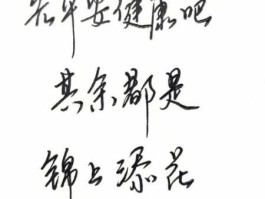 平安健康吧
其余都是
锦上添花